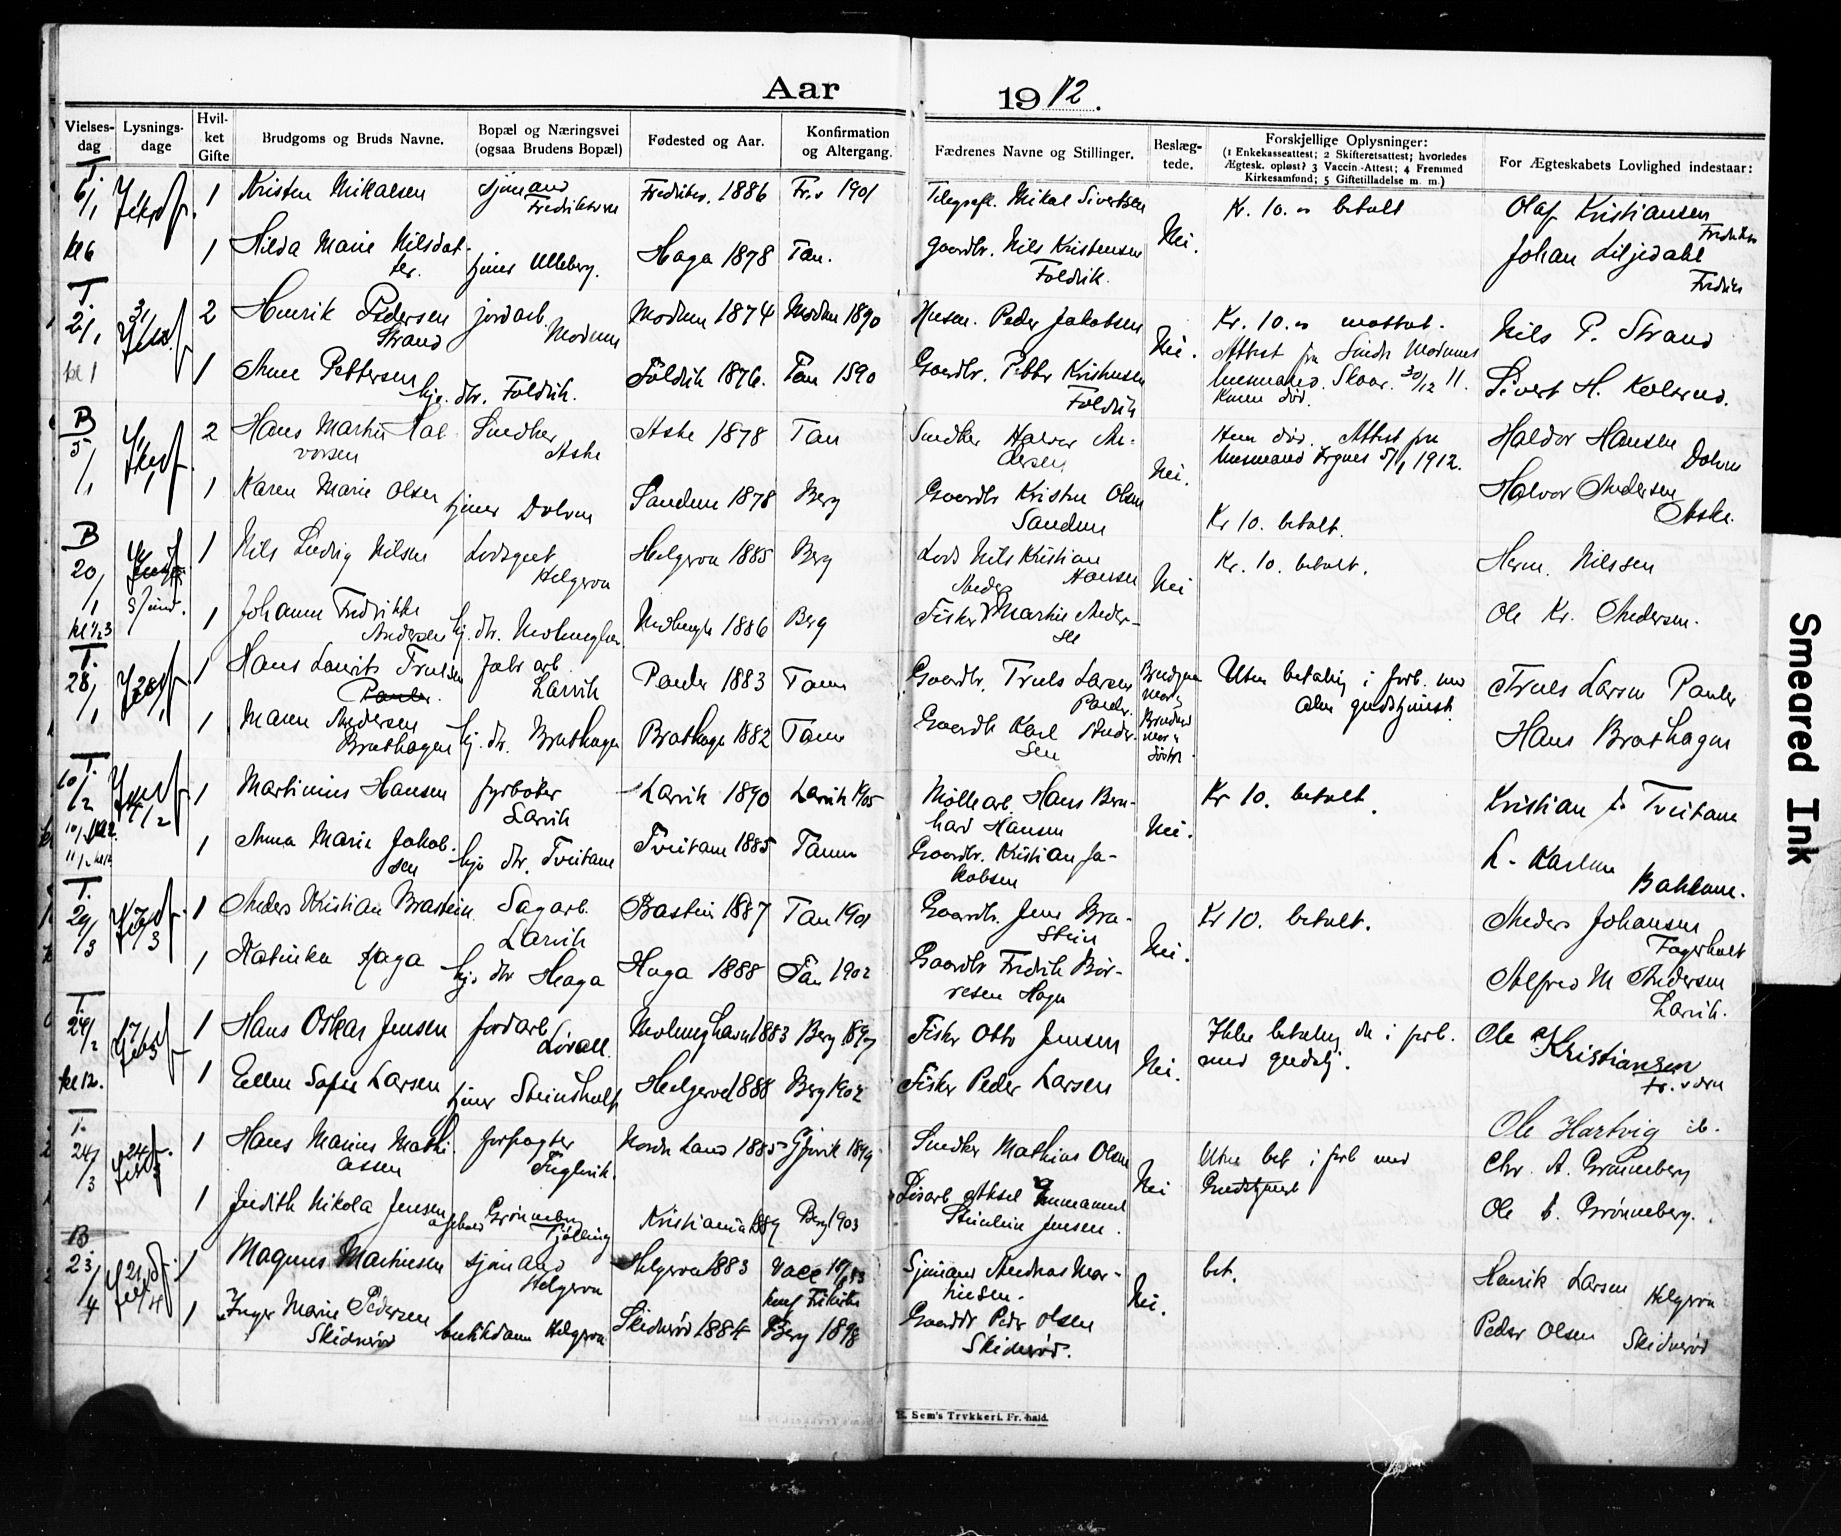 Aar 1912.
Vielsesdag Lysningsdage Hvilket Gifte Brudgoms og Bruds Navne. Bopæl og Næringsvei (ogsaa Brudens Bopæl) Fødested og Aar. Konfirmation og Altergang. Fædrenes Navne og Stillinger. Beslægtede. Forskjellige Oplysninger: (1 Enkekasseattest; 2 Skifteretsattest; hvorledes Ægtesk. opløst? 3 Vaccin.-Attest; 4 Fremmed Kirkesamfund; 5 Giftetilladelse m. m.) For Ægteskabets Lovlighed indestaar:
T. 6/1 1 Kristen Mikalsen sjømand Fredriksvern 1886 Fr.v 1901 Mikal Sivertsen Nei. Kr. 10. betalt Olaf Kristiansen
kl 6 1 Hilda Marie Nilsdatter. tjener Ulleberg. Haga 1878 Tan. gaardbr. Nils Kristensen Foldvik. Johan Liljedahl
T. 2/1 2 Henrik Pedersen Strand jordarb. Modum Modum 1874 Modum 1890 Husm. Peder Jakobsen Nei. Kr. 10. mottat. Attest fra Modums lensmand. Skaar. 30/12 11. Konen død. Nils P. Strand
kl 1 1 Anne Pettersen hje. dtr. Foldvik. Foldvik 1876. Tan 1890 Gaardbr. Petter Kristensen Foldvik Sivert H. Kolsrud.
B 5/1 2 Hans Martin Halvorsen Snedker Aske Aske 1878 Tan Snedker Halvor Andersen Nei. Kon død. Attest fra lensmand 5/1 1912. Haldor Hansen Dolven
1 Karen Marie Olsen tjener Dolven Sanden 1878 Berg Gaardbr Kristen Olsen Sanden Kr 10. betalt. Halvor Andersen Aske.
B 20/1 1 Nils Ludvig Nilsen Lodsgut Helgeroa Helgeroa 1885 Berg Lods Nils Kristian Hansen Nei Kr. 10. betalt. Herm. Nilsen
kl 1/2 3 1 Johanne Fredrikke Andersen hj. dtr. Nevlunghavn 1886 Berg Fisker Martin Andersen Ole Kr. Andersen.
T. 28/1 1 Hans Laurits Trulsen Pauler fabr arb. Larvik Pauler 1883 Tan Gaardbr. Truls Larsen Pauler. Uten betaling i forb. med alm gudstjeneste. Truls Larsen Pauler
1 Maren Andersen Brathagen hj. dtr. Brathagen Brathagen 1882 Tan Gaardb Karl Andersen Hans Brathagen
T. 10/2 1 Martinius Hansen fyrbøter Larvik Larvik 1890 Larvik 1905 Møllearb. Hans Bernhard Hansen Nei. Kr 10. betalt. Kristian J. Tveitane
1 Anna Marie Jakobsen hje dtr. Tveitane Tveitane 1885 Tan Gaardbr. Kristian Jakobsen L. Karlsen Bakkane.
T. 29/3 1 Anders Kristian Brastein Sagarb. Larvik Brastein 1887 Tan 1901 Gaardbr. Jens Brastein Nei. Kr 10. betalt. Anders Johansen Fagerholt
1 Katinka Haga hje dtr Haga Haga 1888 Tan 1902 Gaardbr Fredrik Børresen Haga Alfred M Andersen Larvik.
T. 24/2 1 Hans Oskar Jensen jordarb. Nevlunghavn 1883 Berg 1897 Fisker Otto Jensen Nei. Ikke betaling da i forb. med gudstj. Ole Kristiansen Fr.vern
kl 12. 1 Ellen Sofie Larsen tjener Steinsholt Helgeroa 1888 Berg 1902 Fisker Peder Larsen Ole Hartvig ib.
T. 24/3 1 Hans Marius Mathiassen forpagter Fuglevik. Nordre Land 1885 Gjøvik 1899 Snedker Mathias Olsen Nei Uten bet i forb med Gudstjeneste Chr. A. Grønneberg
1 Judith Nikola Jensen Grønneberg Tjølling Kristiania 1889 Berg 1903 Løsarb Aksel Emmanuel Jensen. Ole Grønneberg.
B 23/4 1 Magnus Mathiesen sjømand Helgeroa Helgeroa 1883 Sjømand Andreas Mathiesen. Nei. bet. Henrik Larsen Helgeroa
1 Inger Marie Pedersen Skidnerød butikdame Helgeroa Skidnerød 1884 Berg 1898 Gaardbr Peder Olsen Skidnerød. Peder Olsen Skidnerød
E. Sem's Trykkeri. Fr.hald.
Smeared Ink